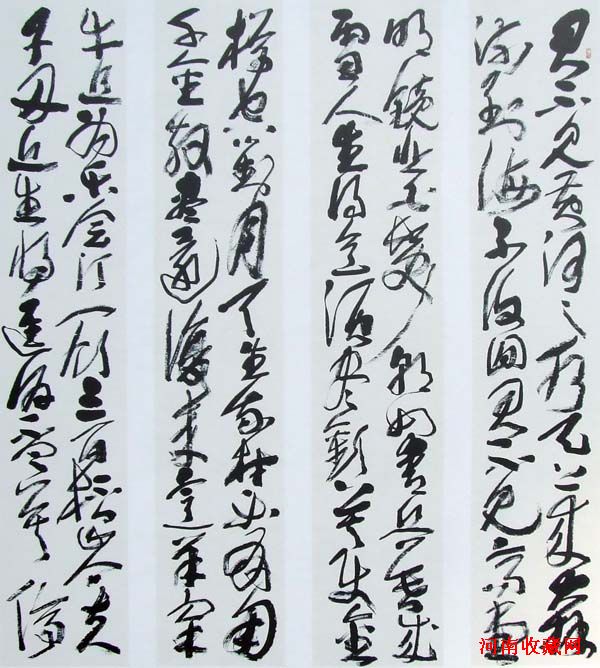 君不見黄河之水天上来奔
流到海不復回君不見高堂
明鏡悲白髮朝如青丝暮成
雪人生得意須盡歡莫使金
樽空對月天生我材必有用
千金散盡還復来烹羊宰
牛且为乐会须一饮三百杯岑夫
子丹丘生将進酒君莫停
河南收藏网